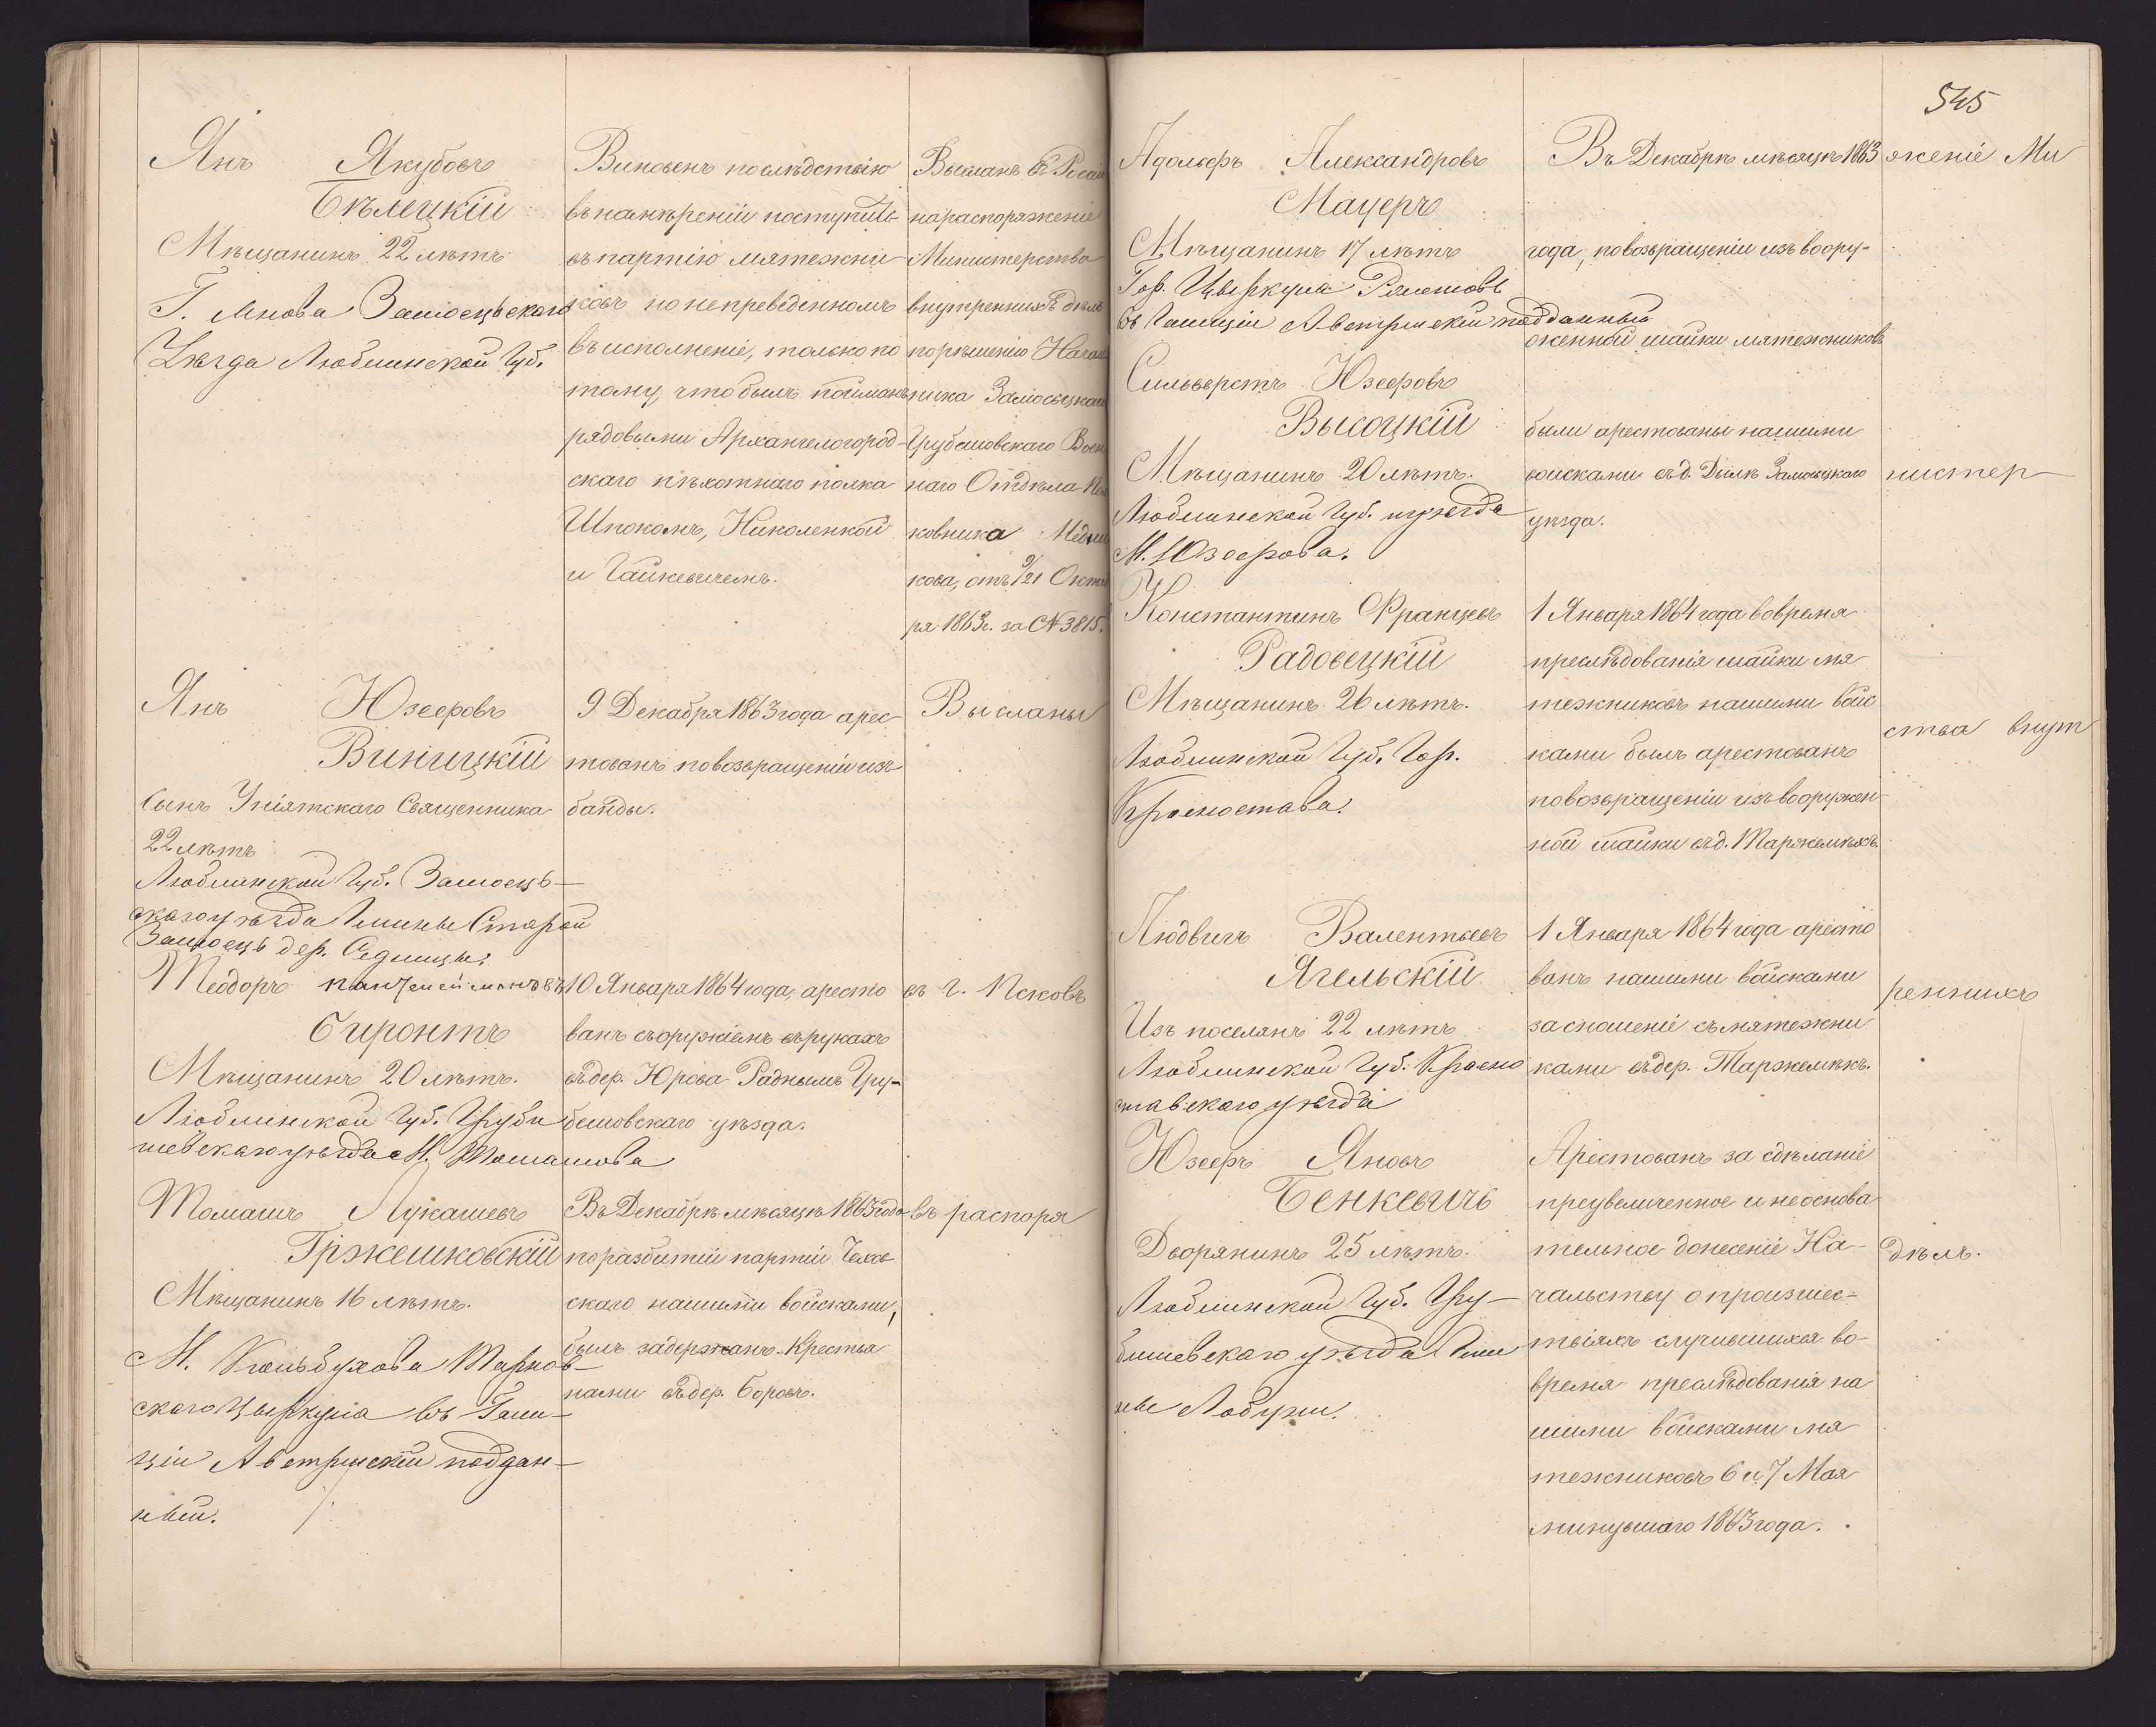 Янъ Якубовъ
Бѣлецкій
Мѣщанинъ 22 лѣтъ
Г. Янова Замосцьскаго
Уѣзда Люблинской Губ.
Виновенъ по слѣдствію
въ намѣреніи поступить
въ партію мятежни
ковъ но непреведенномъ
въ исполненіе, только по
тому, что былъ пойманъ
рядовыми Архангелогород-
скаго пѣхотнаго полка
Шпокомъ, Николенкой
и Гайкевичемъ.
Высланъ въ Россію
на распоряженіе
Министерства
внутреннихъ дѣлъ
по рѣшенію Началь
ника Замосцьскаго
Грубешовскаго Воен
наго Отдѣла Пол
ковника Медни
кова, отъ 9/21 Октяб
ря 1863 г. за № 3815.
Янъ Юзефовъ
Виницкій
Сынъ Уніятскаго Священника
22 лѣтъ
Люблинской Губ. Замосць-
скаго уѣзда Гмины Старой
Замосць дер. Седлиды.
9 Декабря 1863 года арес-
тованъ по возвращеніи изъ
банды.
Высланы
Теодоръ
Биронтъ
Мѣщанинъ 20 лѣтъ.
Люблинской Губ. Груби
шевскаго уѣзда М. Томашова
10 Января 1864 года, аресто
ванъ съ оружіемъ въ рукахъ
въ дер. Юрова Раднымъ Гру-
бешовскаго уѣзда.
въ г. Псковъ
Томашъ Лукашевъ
Гржешковскій
Мѣщанинъ 16 лѣтъ.
М. Кольбухова Тарнов-
скаго Циркула въ Гали-
ціи Австрійскій поддан-
ный.
Въ Декабрѣ мѣсяцѣ 1863 года
по разбитіи партіи
скаго нашими войсками,
былъ задержанъ Крестья
нами въ дер. Боровъ.
въ распоря
545
Адольфъ Александровъ
Мауеръ
Мѣщанинъ 17 лѣтъ
Гор. Циркула Ряшовъ
въ Галиціи Австрійскій подданный
Въ Декабрѣ мѣсяцѣ 1863
года, по возвращеніи изъ воору-
женной шайки мятежниковъ
женіе Ми
Сильверстъ Юзефовъ
Высоцкій
Мѣщанинъ 20 лѣтъ.
Люблинской Губ. и уѣзда
М. Юзефова.
были арестованы нашими
войсками въ д. Дылѣ Замосцьскаго
уѣзда.
нистер
Константинъ Францевъ
Радовецкій
Мѣщанинъ 26 лѣтъ.
Люблинской Губ. Гор.
Красностава.
1 Января 1864 года вовремя
преслѣдованія шайки мя
тежниковъ нашими войс
ками былъ арестованъ
по возвращеніи изъ вооружен
ной шайки въ д. Таржемѣхъ.
ства внут
Людвигъ Валентьевъ
Ягельскій
Изъ поселянъ 22 лѣтъ
Люблинской Губ. Красно
ставскаго уѣзда
1 Января 1864 года аресто
ванъ нашими войсками
за сношеніе съ мятежни
ками въ дер. Таржемѣхъ.
реннихъ
Юзефъ Яновъ
Бенкевичъ
Дворянинъ 25 лѣтъ.
Люблинской Губ. Гру-
бишевскаго уѣзда Гми
ны Лабуни.
Арестованъ за сдѣланіе
преувеличенное и неоснова
тельное донесеніе На-
чальству о произшес-
твіяхъ случившихся во-
время преслѣдованія на
шими войсками мя
тежниковъ 6 и 7 Мая
минувшаго 1863 года.
дѣлъ.